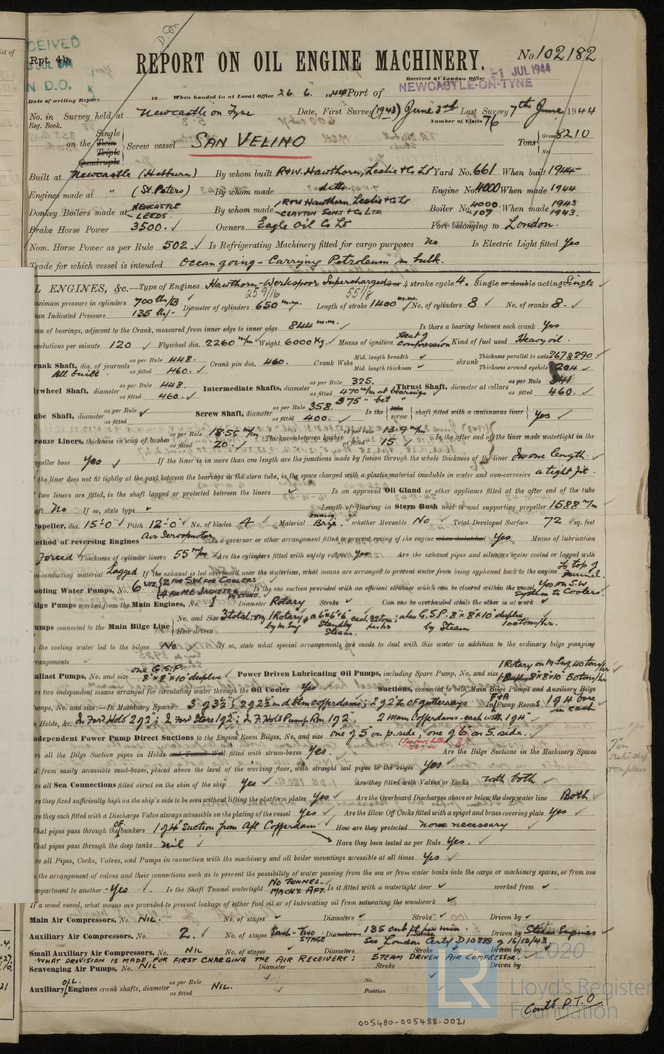 CEIVED
Rpt. 4b.
N D.O.
REPORT ON OIL ENGINE MACHINERY.
No. 102182
Received at London Office
1 JUL 1944
NEWCASTLE-ON-TYNE
Date of writing Report 19 When handed in at Local Office 26. 6. 1944 Port of
No. in Survey held at Newcastle on Tyne Date, First Survey (1943) June 3rd Last Survey 7th June 1944
Reg. Book. Number of Visits 76
on the Single Twin Triple Quadruple Screw vessel SAN VELINO Tons Gross 8210 Net
Built at Newcastle (Hebburn) By whom built R&W. Hawthorn, Leslie & Co Ld Yard No. 661 When built 1944
Engines made at " (St. Peters) By whom made ditto Engine No. 4000 When made 1944
Donkey Boilers made at NEWCASTLE LEEDS. By whom made R&W Hawthorn, Leslie & Co CLAYTON SONS & Co LTD Boiler No. 4000. 107 When made 1943 1943.
Brake Horse Power 3500. Owners Eagle Oil Co Ld Port belonging to London.
Nom. Horse Power as per Rule 502. Is Refrigerating Machinery fitted for cargo purposes No Is Electric Light fitted Yes
Trade for which vessel is intended Ocean going - Carrying Petroleum in bulk.
L ENGINES, &c.—Type of Engines Hawthorn-Werkspoor Supercharged 2 or 4 stroke cycle 4. Single or double acting Single
maximum pressure in cylinders 700 lb/□ Diameter of cylinders 650 m.m. 25 9/16 Length of stroke 1400 m.m. 55 1/8 No. of cylinders 8 No. of cranks 8.
an Indicated Pressure 135 lb/□
an of bearings, adjacent to the Crank, measured from inner edge to inner edge 844 m.m. Is there a bearing between each crank Yes
evolutions per minute 120 Flywheel dia. 2260 m/m Weight 6000 Kg. Means of ignition Heat of Compression Kind of fuel used Heavy oil.
rank Shaft, dia. of journals as per Rule 448. as fitted 460. Crank pin dia. 460. Crank Webs Mid. length breadth Mid. length thickness shrunk Thickness parallel to axis 267 & 290. Thickness around eyehole 204
All built
ywheel Shaft, diameter as per Rule 448. as fitted 460. Intermediate Shafts, diameter as per Rule 325. as fitted 470 m/m at bearings 375 - bet Thrust Shaft, diameter at collars as per Rule 341 as fitted 460.
ube Shaft, diameter as per Rule as fitted Screw Shaft, diameter as per Rule 358. as fitted 400. Is the tube screw shaft fitted with a continuous liner Yes
ronze Liners, thickness in way of bushes as per Rule 18.55 m/m as fitted 20. Thickness between bushes as per Rule 13.9 m/m as fitted 15 Is the after end of the liner made watertight in the
opeller boss Yes If the liner is in more than one length are the junctions made by fusion through the whole thickness of the liner In one length
the liner does not fit tightly at the part between the bearings in the stern tube, is the space charged with a plastic material insoluble in water and non-corrosive a tight fit.
two liners are fitted, is the shaft lapped or protected between the liners Is an approved Oil Gland or other appliance fitted at the after end of the tube
No If so, state type Length of Bearing in Stern Bush next to and supporting propeller 1588 m/m
opeller, dia. 15'-0" Pitch 12'-0" No. of blades 4 Material Brze. whether Moveable No Total Developed Surface 72 sq. feet
ethod of reversing Engines Air Servomotor Is a governor or other arrangement fitted to prevent racing of the engine when declutched Yes Means of lubrication
Forced Thickness of cylinder liners 55 m/m Are the cylinders fitted with safety valves Yes Are the exhaust pipes and silencers water cooled or lagged with
n-conducting material Lagged If the exhaust is led overboard near the waterline, what means are arranged to prevent water being syphoned back to the engine To top of funnel
ooling Water Pumps, No. 6 viz 2 FOR S.W. FOR COOLERS 4 FOR ME JACKETS & PISTONS. Is the sea suction provided with an efficient strainer which can be cleared within the vessel Yes on S.W system to Coolers
ilge Pumps worked from the Main Engines, No. 1 Diameter Rotary Stroke Can one be overhauled while the other is at work
umps connected to the Main Bilge Line No. and Size 3 total: viz 1 Rotary & 6x6x6 each 32 tons; also G.S.P. 8"x8"x10 duplex
How driven by M. Eng Standby Steam. p. hr by Steam 100 tons/hr.
the cooling water led to the bilges No If so, state what special arrangements are made to deal with this water in addition to the ordinary bilge pumping
rrangements
allast Pumps, No. and size one G.S.P. 8"x8"x10 duplex Power Driven Lubricating Oil Pumps, including Spare Pump, No. and size 1 Rotary on M Eng 40 tons/hr
re two independent means arranged for circulating water through the Oil Cooler Yes Suctions, connected to both Main Bilge Pumps and Auxiliary Bilge
umps, No. and size:—In Machinery Spaces In Pump Room
Holds, &c.
ndependent Power Pump Direct Suctions to the Engine Room Bilges, No. and size one of 5" on p. side, one of 6" on S. side.
re all the Bilge Suction pipes in Holds and Tunnel Well fitted with strum-boxes Yes. Are the Bilge Suctions in the Machinery Spaces
d from easily accessible mud-boxes, placed above the level of the working floor, with straight tail pipes to the bilges Yes
re all Sea Connections fitted direct on the skin of the ship Yes Are they fitted with Valves or Cocks with both
re they fixed sufficiently high on the ship's side to be seen without lifting the platform plates Yes Are the Overboard Discharges above or below the deep water line Both
re they each fitted with a Discharge Valve always accessible on the plating of the vessel Yes Are the Blow Off Cocks fitted with a spigot and brass covering plate Yes
hat pipes pass through the bunkers 1 of 4" suction from Aft Cofferdam How are they protected none necessary
hat pipes pass through the deep tanks Nil Have they been tested as per Rule Yes.
re all Pipes, Cocks, Valves, and Pumps in connection with the machinery and all boiler mountings accessible at all times Yes
the arrangement of valves and their connections such as to prevent the possibility of water passing from the sea or from water tanks into the cargo or machinery spaces, or from one
partment to another Yes Is the Shaft Tunnel watertight NO TUNNEL. MACHY. AFT. Is it fitted with a watertight door worked from
If a wood vessel, what means are provided to prevent leakage of either fuel oil or of lubricating oil from saturating the woodwork
Main Air Compressors, No. NIL. No. of stages Diameters Stroke Driven by
Auxiliary Air Compressors, No. 2. No. of stages Each-TWO STAGE Diameters 135 cub ft per min. Stroke Driven by Steam Engines
See London Certy D10898 of 16/12/43
Small Auxiliary Air Compressors, No. NIL No. of stages Diameters Stroke Driven by
WHAT PROVISION IS MADE, FOR FIRST CHARGING THE AIR RECEIVERS: STEAM DRIVEN AIR COMPRESSOR.
Scavenging Air Pumps, No. NIL Diameter Stroke Driven by
Auxiliary Engines crank shafts, diameter as per Rule as fitted NIL. No. Position
Contd P.T.O
© 2020
LR
Lloyd's Register
Foundation
005480-005488-0021